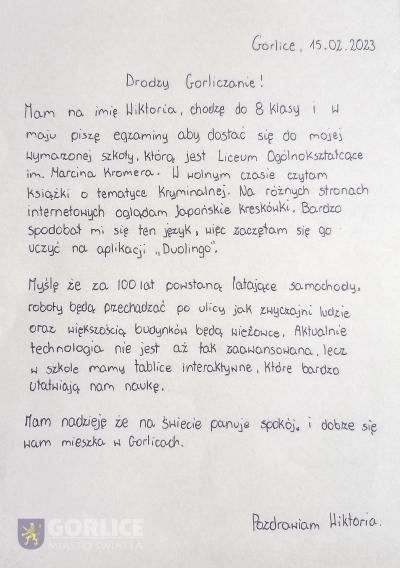 Gorlice, 15.02.2023
Drodzy Gorliczanie!
Mam na imię Wiktoria, chodzę do 8 klasy i w
maju piszę egzaminy aby dostać się do mojej
wymarzonej szkoły, którą jest Liceum Ogólnokształcące
im. Marcina Kromera. W wolnym czasie czytam
książki o tematyce kryminalnej. Na różnych stronach
internetowych oglądam Japońskie kreskówki. Bardzo
spodobał mi się ten język, więc zaczęłam się go
uczyć na aplikacji „Duolingo”.
Myślę że za 100 lat powstaną latające samochody,
roboty będą przechadzać po ulicy jak zwyczajni ludzie
oraz większością budynków będą wieżowce. Aktualnie
technologia nie jest aż tak zaawansowana, lecz
w szkole mamy tablice interaktywne, które bardzo
ułatwiają nam naukę.
Mam nadzieję że na świecie panuje spokój, i dobrze się
wam mieszka w Gorlicach.
Pozdrawiam Wiktoria.
GORLICE
MIASTO ŚWIATŁA